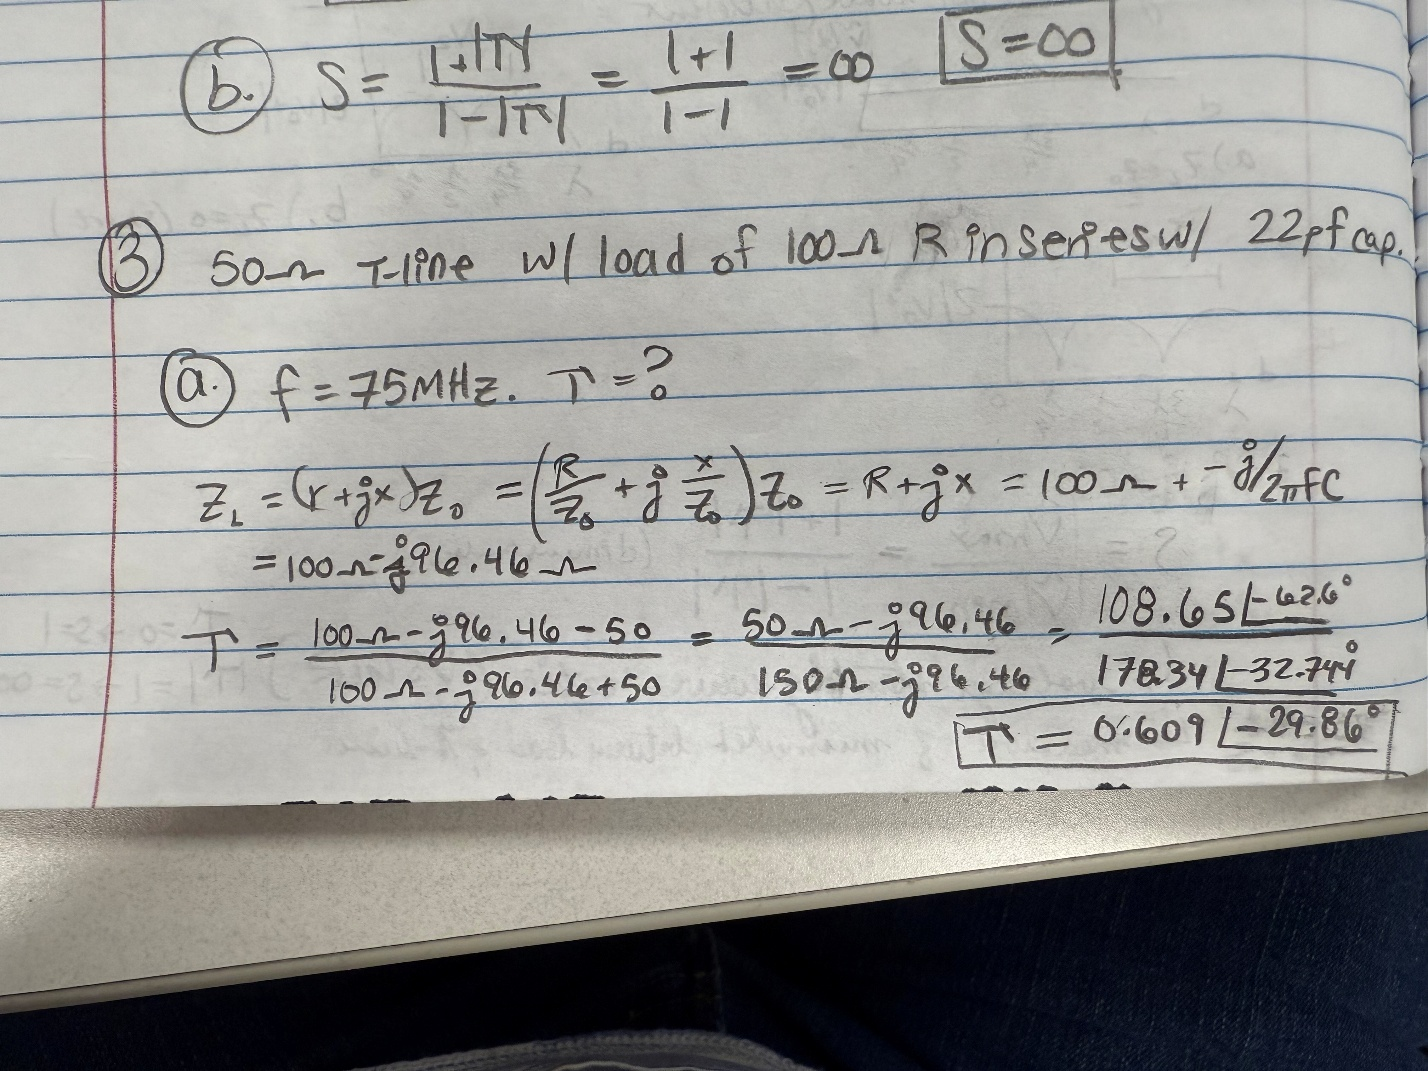 b. S = 1+|Γ| / 1-|Γ| = 1+1 / 1-1 = ∞ S=∞
3 50Ω T-line w/ load of 100Ω R in series w/ 22pf cap.
a. f = 75MHz. Γ = ?
Z_L = (r+jx)Z_0 = (R/Z_0 + j x/Z_0) Z_0 = R+jx = 100Ω + -j/2πfC
= 100Ω-j96.46Ω
Γ = 100Ω-j96.46-50 / 100Ω-j96.46+50 = 50Ω-j96.46 / 150Ω-j96.46 = 108.65∠-62.6° / 178.34∠-32.744°
Γ = 0.609∠-29.86°